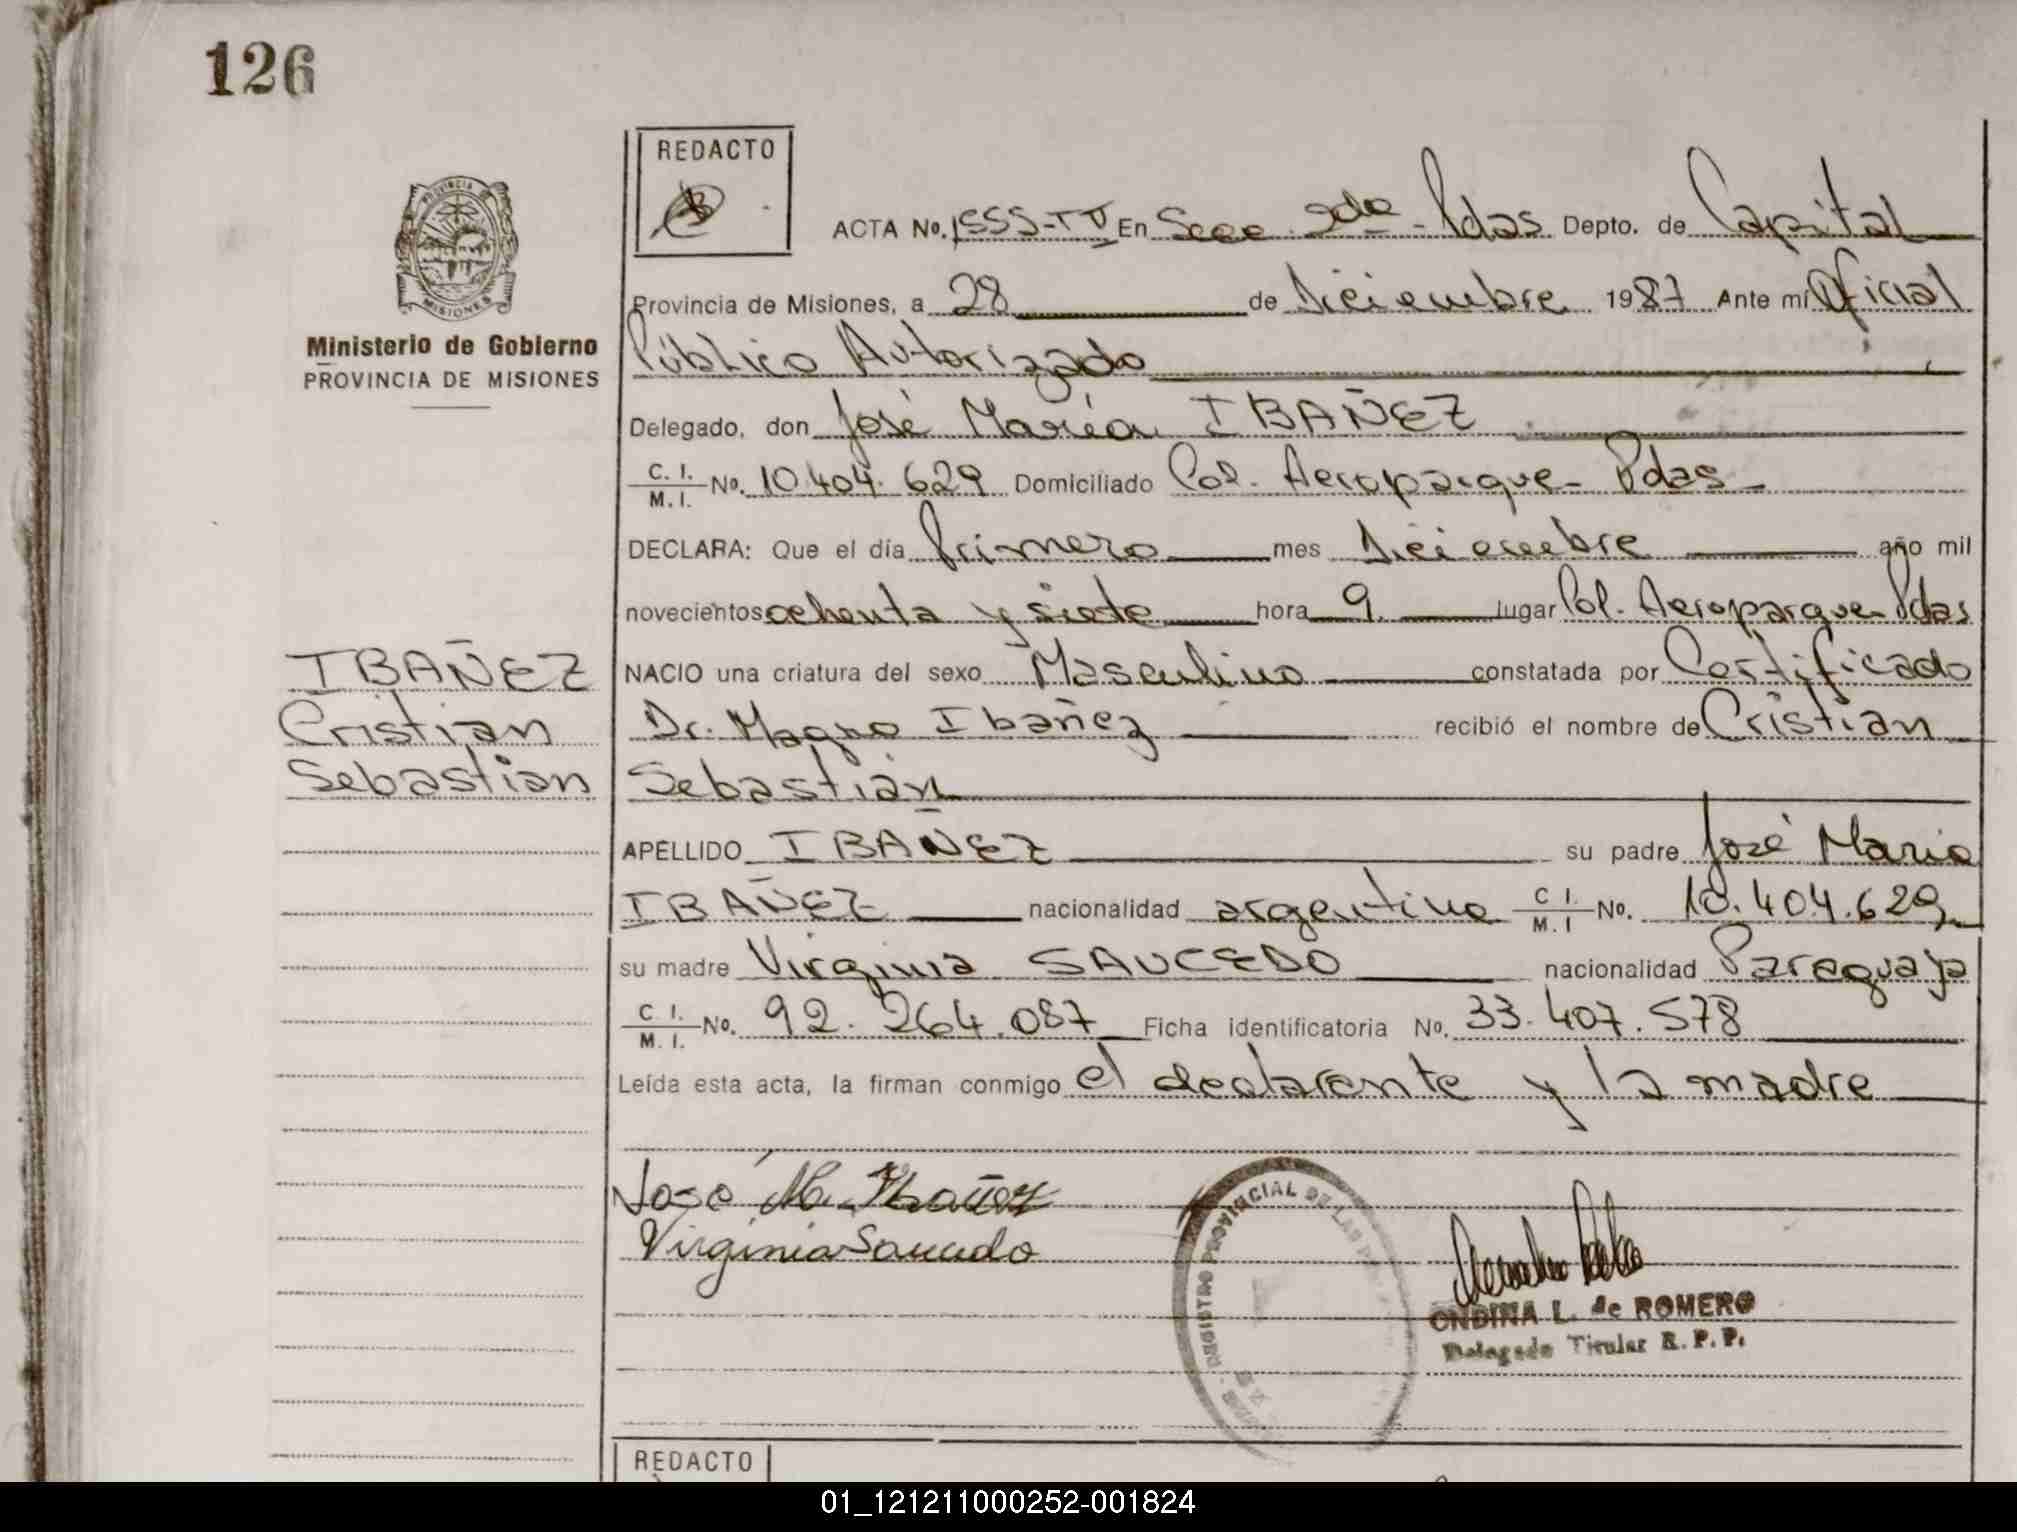 126
REDACTO
ACTA No. 1555-TV En Secc 2da - Pdas Depto. de Capital
PROVINCIA
MISIONES
Provincia de Misiones, a 28 de Diciembre 1987 Ante mí Oficial
Ministerio de Gobierno
Público Autorizado
PROVINCIA DE MISIONES
Delegado, don José María IBAÑEZ
C. I. / M. I. No. 10.404.629 Domiciliado Col. Aeroparque - Pdas -
DECLARA: Que el día Primero mes Diciembre año mil
novecientos ochenta y siete hora 9 lugar Col. Aeroparque - Pdas
IBAÑEZ
NACIO una criatura del sexo Masculino constatada por Certificado
Cristian
Dr. Magno Ibañez recibió el nombre de Cristian
Sebastian
Sebastián
APELLIDO IBAÑEZ su padre José Maria
IBAÑEZ nacionalidad argentino C I. / M. I No. 10.404.629
su madre Virginia SAUCEDO nacionalidad Paraguaya
C I. / M. I. No. 92.264.087 Ficha identificatoria No. 33.407.578
Leída esta acta, la firman conmigo el declarante y la madre
José M. Ybañez
Virginia Saucedo
REGISTRO PROVINCIAL DE LAS
ONDINA L. de ROMERO
Delegado Titular R. P. P.
REDACTO
01_121211000252-001824